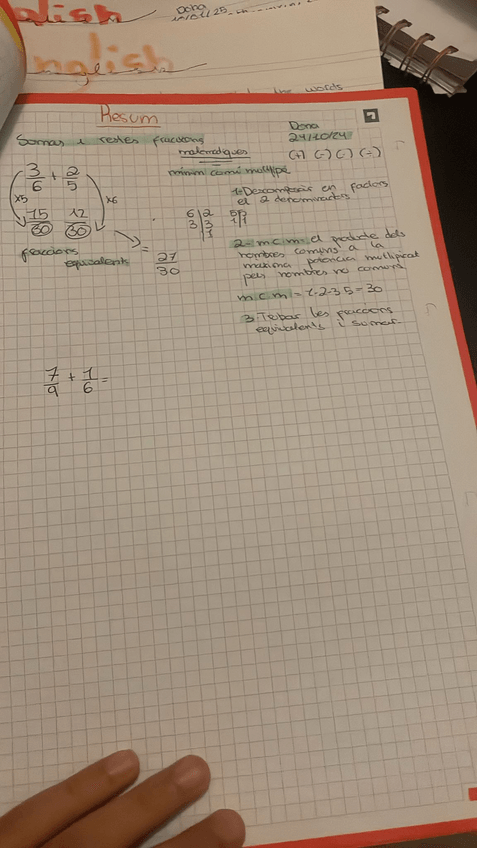 English
Dona
English
the words
Resum
Dona
24/10/24
Somas i restes fraccions
matemàtiques
(+) (-) (·) (÷)
mínim comú múltiple
3/6 + 2/5
x5
x6
15/30 12/30
= 27/30
fraccions
equivalents
1- Descomposar en factors
el 2 denominadors
6 2
3 3
1
5 5
1 1
2- m c m = el producte dels
nombres comuns a la
màxima potencia multiplicat
pels nombres no comuns
m c m = 1·2·3·5 = 30
3- Trobar les fraccions
equivalents i sumar
7/9 + 1/6 =